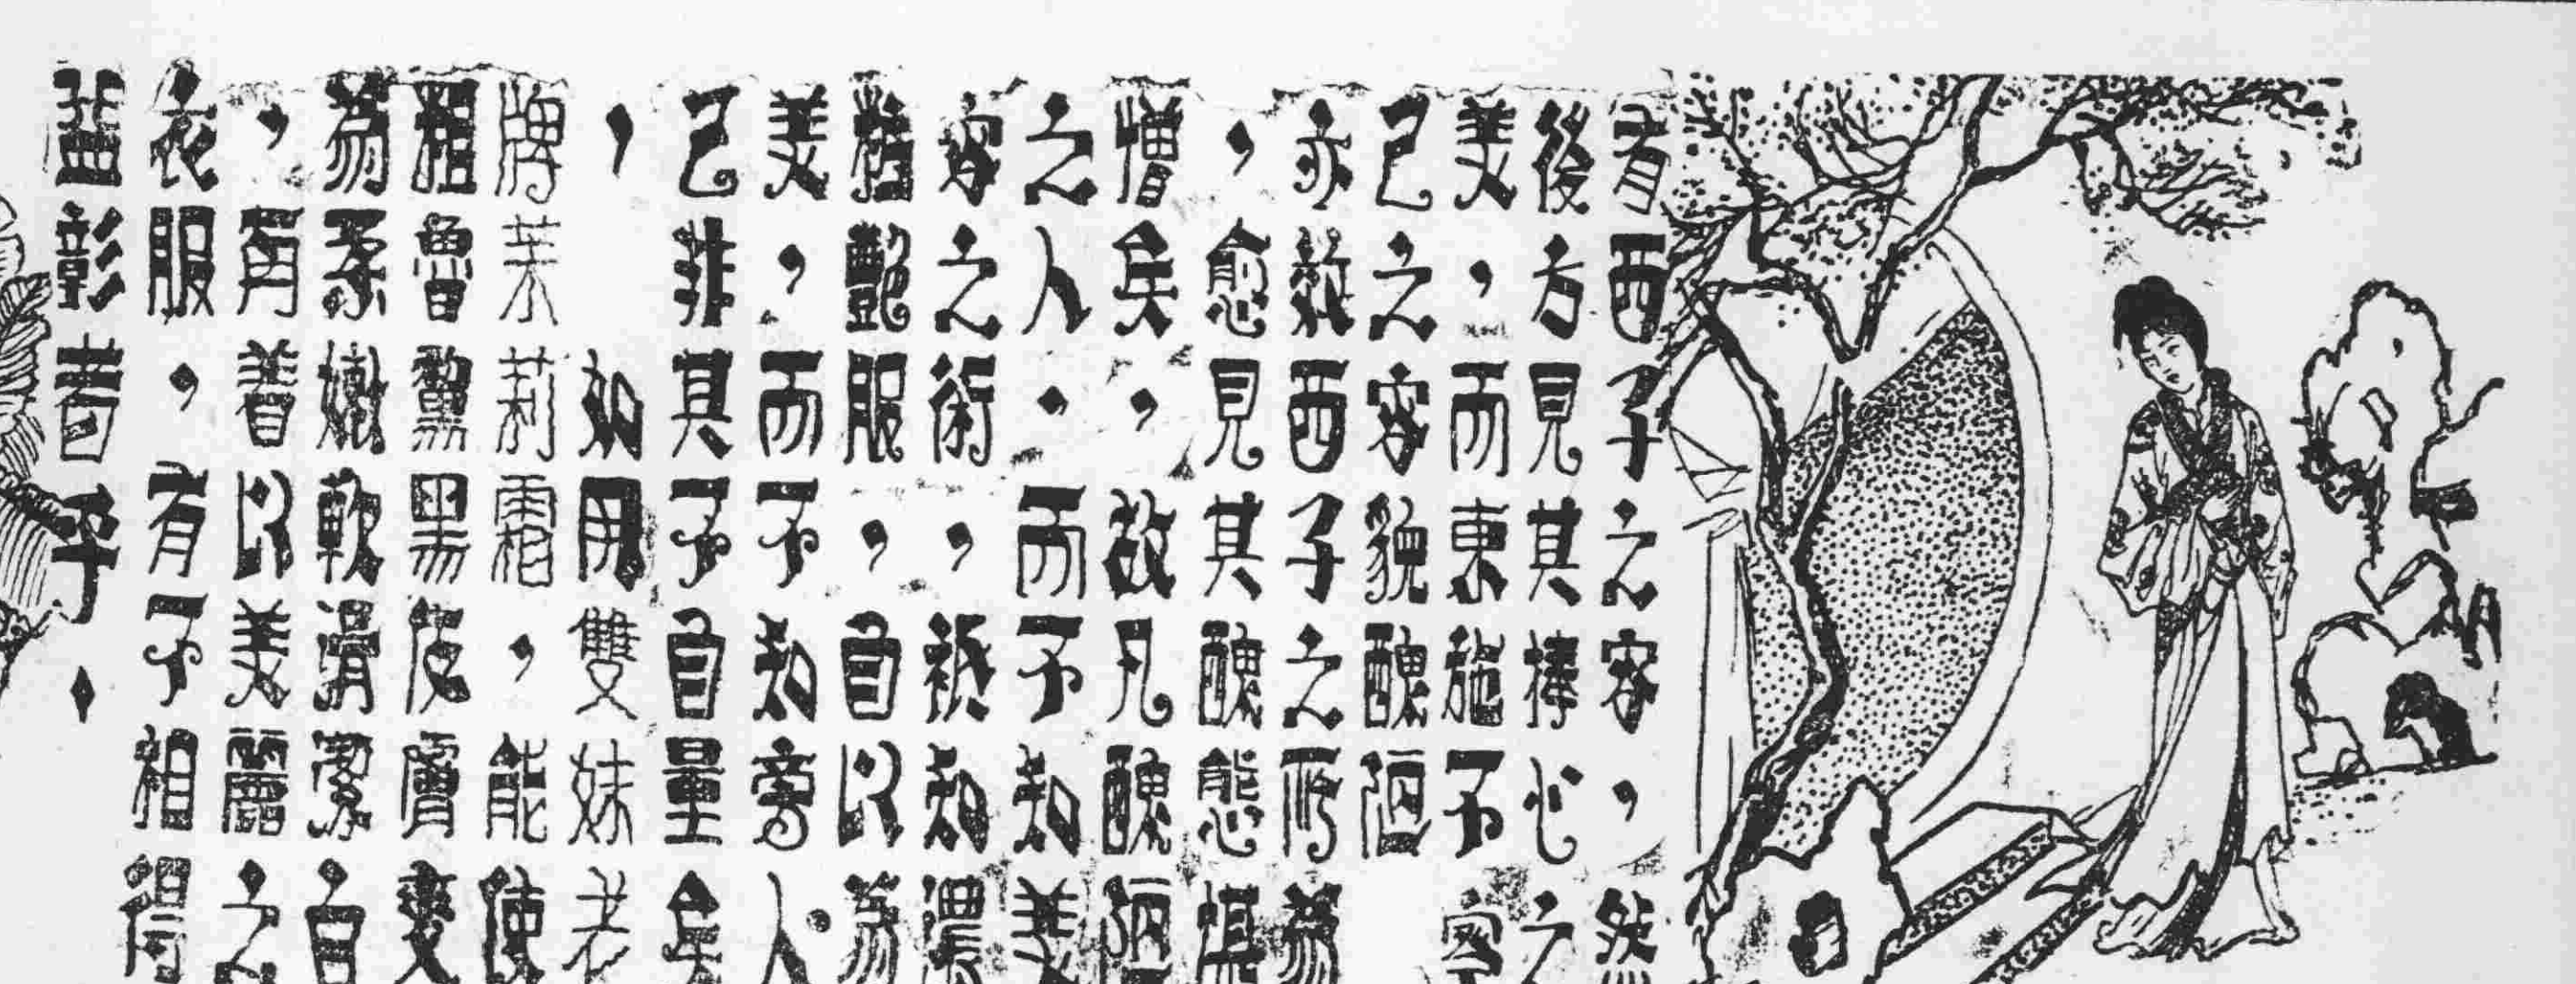 有西子之容，然
後方見其捧心之
美，而東施不容
己之容貌醜陋
亦效西子之所為
，愈見其醜態堪
憎矣，故凡醜陋
之人，而不知美
容之術，祇知濃
粧艷服，自以為
美，而不知旁人
己非其不自量矣
，如用雙妹老
牌茉莉霜，能使
粗魯黧黑皮膚變
為柔嫩軟滑潔白
，再着以美麗之
衣服，有不相得
益彰者乎。